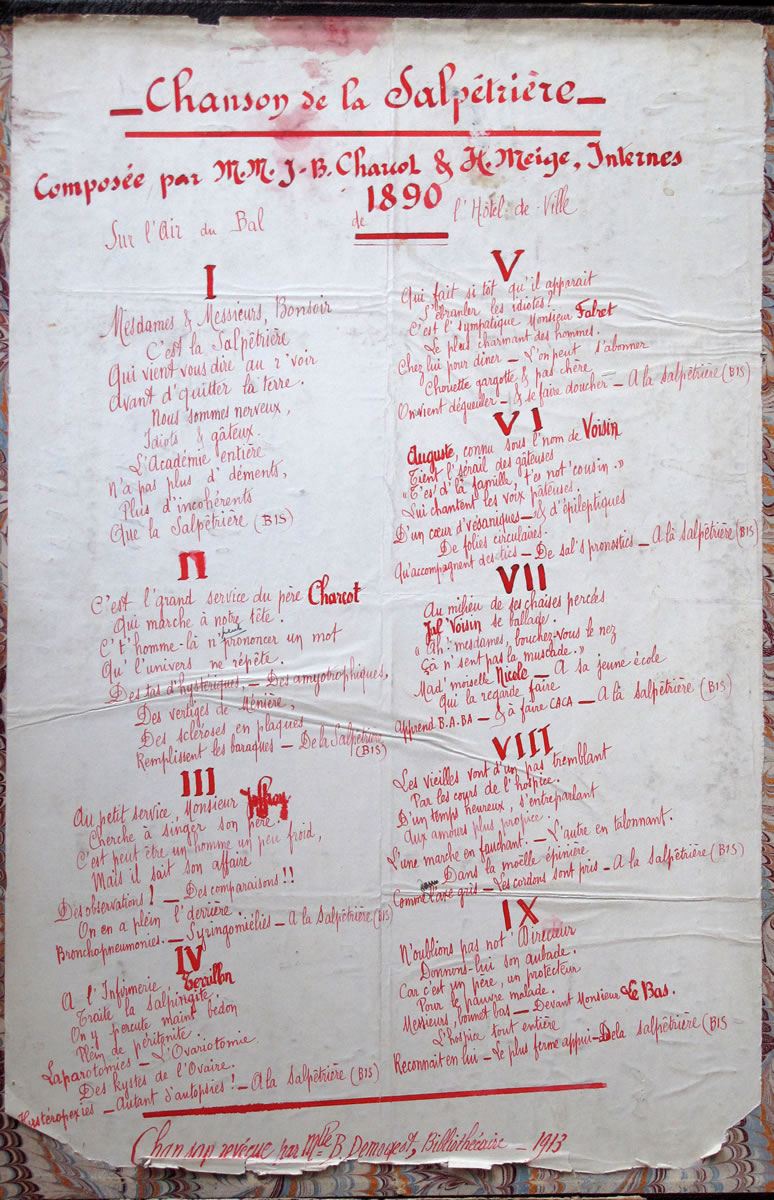 Chanson de la Salpêtrière
Composée par M.M. J-B. Charcot & H. Meige, Internes
1890
Sur l'Air du Bal de l'Hôtel de Ville
I
Mesdames & Messieurs, Bonsoir
C'est la Salpêtrière
Qui vient vous dire au r'voir
Avant d'quitter la terre.
Nous sommes nerveux,
Idiots & gâteux.
L'Académie entière
N'a pas plus d'déments,
Plus d'incohérents
Que la Salpêtrière (BIS)
II
C'est l'grand service du père Charcot
Qui marche à notre tête.
C't'homme-là n'peut prononcer un mot
Qu'l'univers ne répète.
Des tas d'hystériques, — Des amyotrophiques,
Des vertiges de Ménière,
Des scléroses en plaques
Remplissent les baraques — De la Salpêtrière
(BIS)
III
Au petit service, Monsieur Joffroy
Cherche à singer son père.
C'est peut être un homme un peu froid,
Mais il sait son affaire
Des observations! — Des comparaisons!!
On en a plein l'derrière.
Bronchopneumonies. — Syringomiélies — A la Salpêtrière (BIS)
IV
A l'Infirmerie Terrillon
Traite la salpingite,
On y percute maint bedon
Plein de péritonite.
Laparotomies — L'Ovariotomie
Des kystes de l'Ovaire.
Hystéropexies — Autant d'autopsies! — A la Salpêtrière (BIS)
V
Qui fait si tôt qu'il apparait
S'ébranler les idiotes?
C'est l'sympatique Monsieur Falret
Le plus charmant des hommes.
Chez lui pour dîner — L'on peut s'abonner
Chouette gargotte & pas chère
On vient dégueuler — & se faire doucher — A la Salpêtrière (BIS)
VI
Auguste, connu sous l'nom de Voisin
Tient l'sérail des gâteuses
« T'es d'la famille, t'es not'cousin. »
Lui chantent les voix pâteuses.
D'un cœur d'vésaniques — & d'épileptiques
De folies circulaires.
Qu'accompagnent des tics — De sal's pronostics — A la Salpêtrière (BIS)
VII
Au milieu de ses chaises percées
Jul' Voisin se ballade.
« Ah! mesdames, bouchez-vous le nez
Çà n'sent pas la muscade. »
Mad'moiselle Nicole — A sa jeune école
Qui la regarde faire
Apprend B.A.BA — & à faire CACA — A la Salpêtrière (BIS)
VIII
Les vieilles vont d'un pas tremblant
Par les cours de l'hospice.
D'un temps heureux, s'entreparlant
Aux amours plus propice.
L'une marche en fauchant. — L'autre en talonnant.
Dans la moëlle épinière
Comme l'axe gris — Les cordons sont pris — A la Salpêtrière (BIS)
IX
N'oublions pas not' Directeur
Donnons-lui son aubade.
Car c'est un père, un protecteur
Pour le pauvre malade.
Messieurs, bonnet bas — Devant Monsieur Le Bas.
L'hospice tout entière
Reconnait en lui — Le plus ferme appui — De la Salpêtrière (BIS
Chanson reveçue par Mlle B. Demogeot, Bibliothécaire — 1913